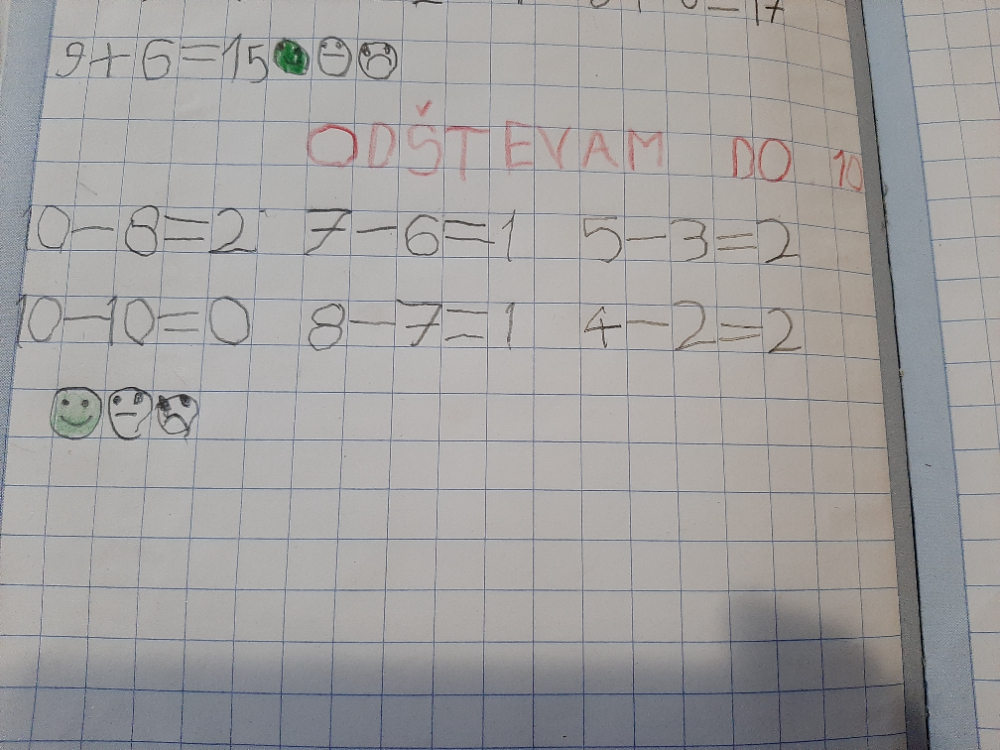 = 17
9+6=15
ODŠTEVAM DO 10
10-8=2 7-6=1 5-3=2
10-10=0 8-7=1 4-2=2